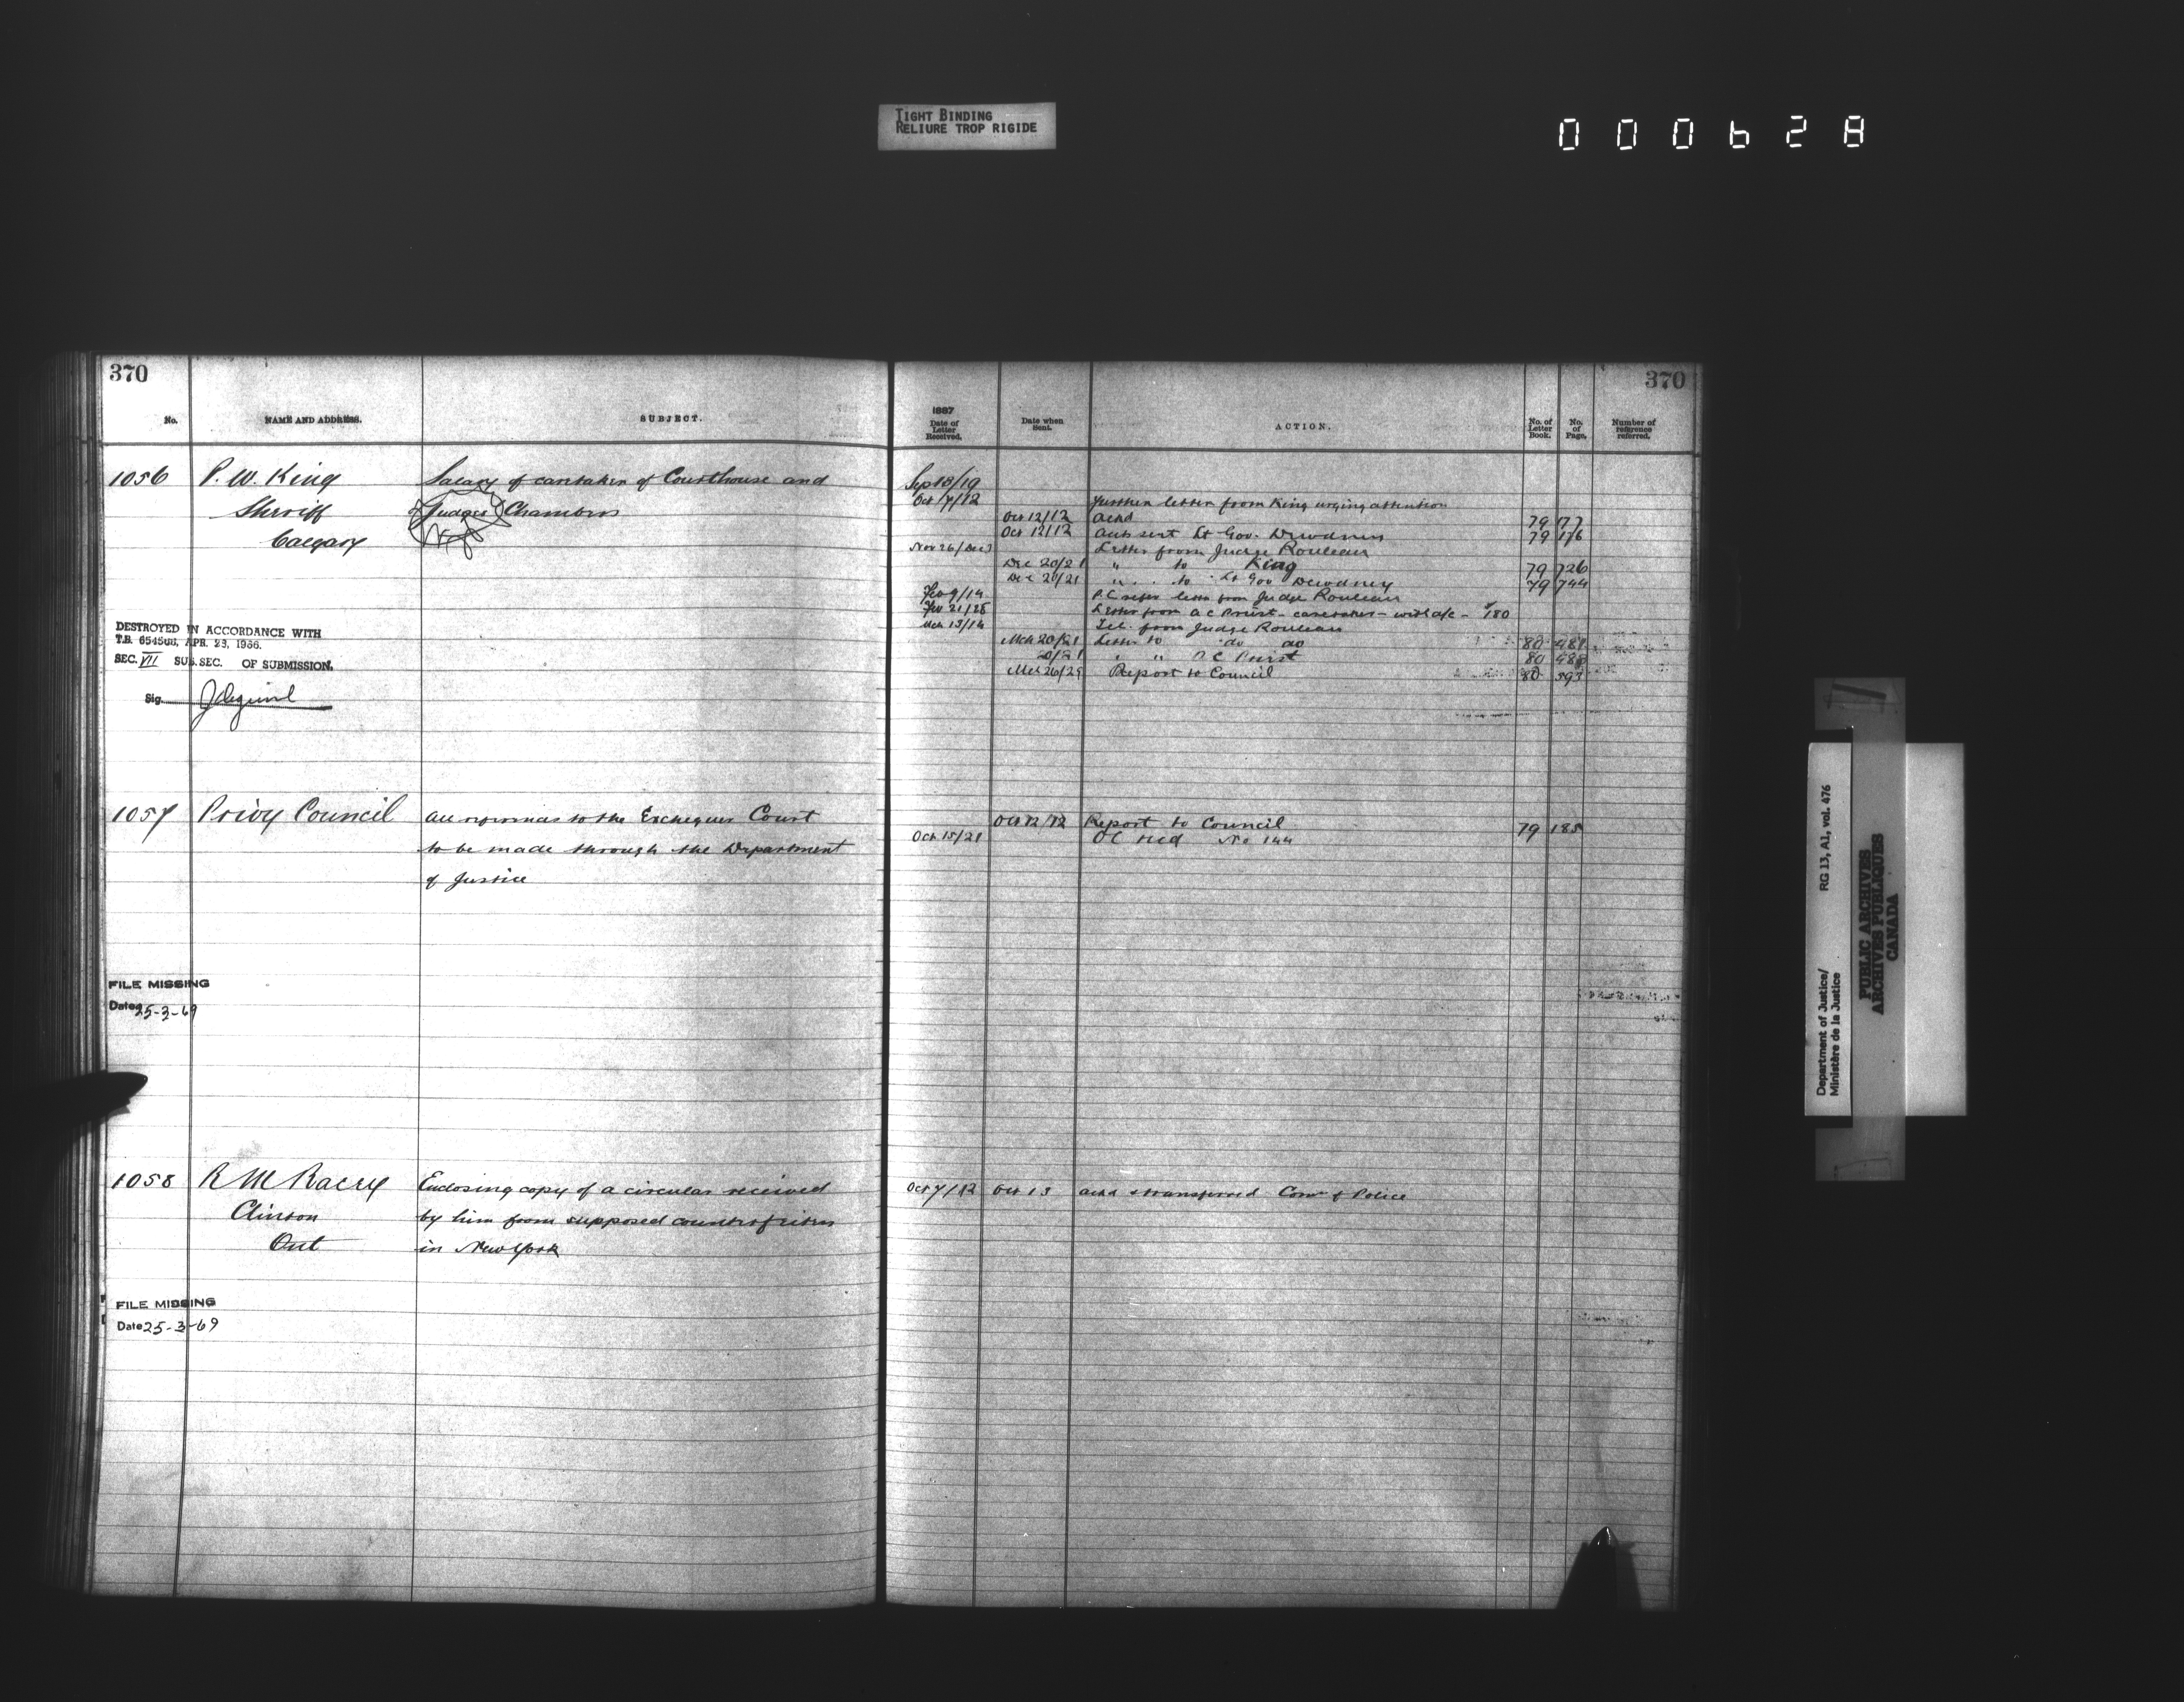 TIGHT BINDING
RELIURE TROP RIGIDE
000628
370
No. NAME AND ADDRESS. SUBJECT.
1056 P. W. King Salary of caretaker of Courthouse and
Sheriff Judges Chambers
Calgary
DESTROYED IN ACCORDANCE WITH
T.B. APR. 23, 1966.
SEC. VII SUB. SEC. OF SUBMISSION.
Sig.
1057 Privy Council All references to the Exchequer Court
to be made through the Department
of Justice
FILE MISSING
Date 25-3-69
1058 R M Racey Enclosing copy of a circular received
Clinton by him from supposed counterfeiters
Ont in New York
FILE MISSING
Date 25-3-69
370
1887
Date of Letter Received. Date when Sent. ACTION. No. of Letter Book. No. of Page. Number of reference referred.
Sep 18/19
Oct 7/12 further letter from King urging attention
Oct 12/12 ackd 79 177
Oct 12/12 sent Lt Gov. Dewdney 79 176
Nov 26/Dec Letter from Judge Rouleau
Dec 20/21 " to King 79 726
Dec 20/21 " to Lt Gov Dewdney 79 744
Feb 9/14 P.C. refer letter from Judge Rouleau
Feb 21/28 Letter from A C Priest - caretaker - with a/c - $180
Mch 13/14 Tel. from Judge Rouleau
Mch 20/21 Letter to do do 80 481
20/21 " " A C Priest 80
Mch 26/29 Report to Council 80 593
Oct 12/12 Report to Council 79 185
Oct 15/21 O C recd No 144
Oct 7/12 Oct 13 ackd & transferred Comr of Police
Department of Justice/ RG 13, A1, vol. 476
Ministère de la Justice
PUBLIC ARCHIVES
ARCHIVES PUBLIQUES
CANADA